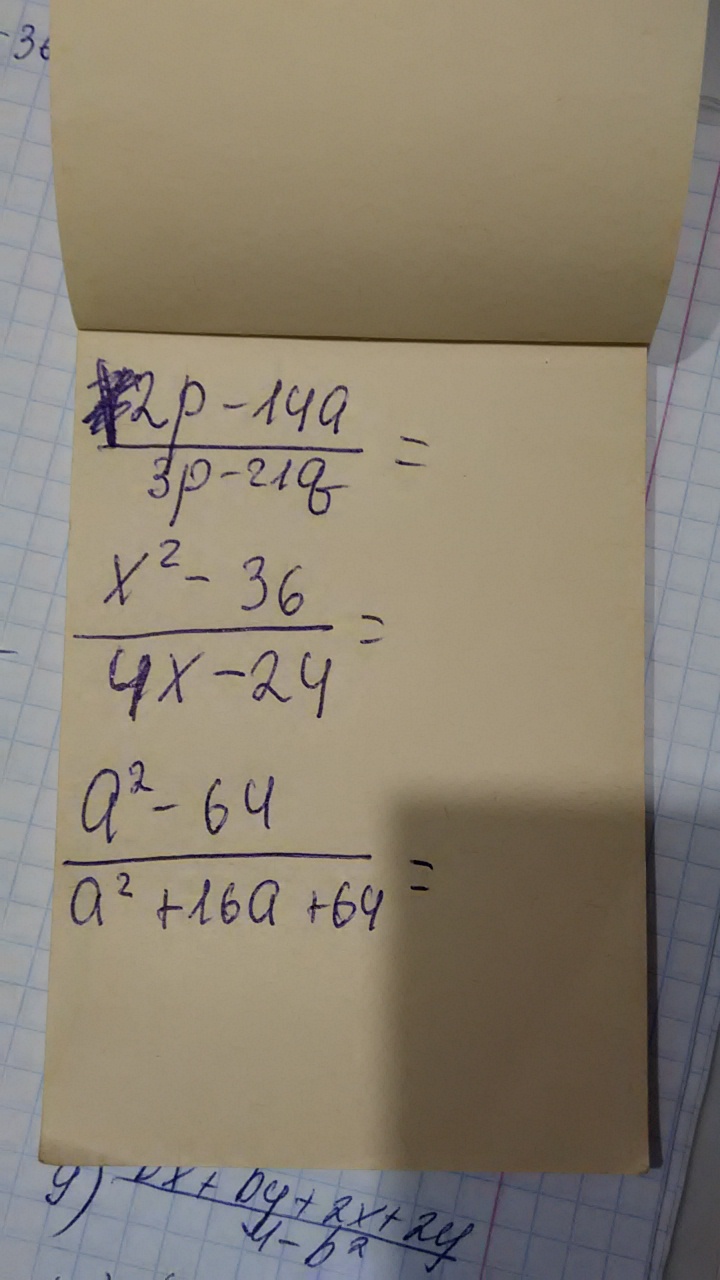 -36
2p-14a
3p-21q
=
x²- 36
4x-24
=
a²- 64
a² +16a +64
=
y) + by + 2x + 2y
4-b²